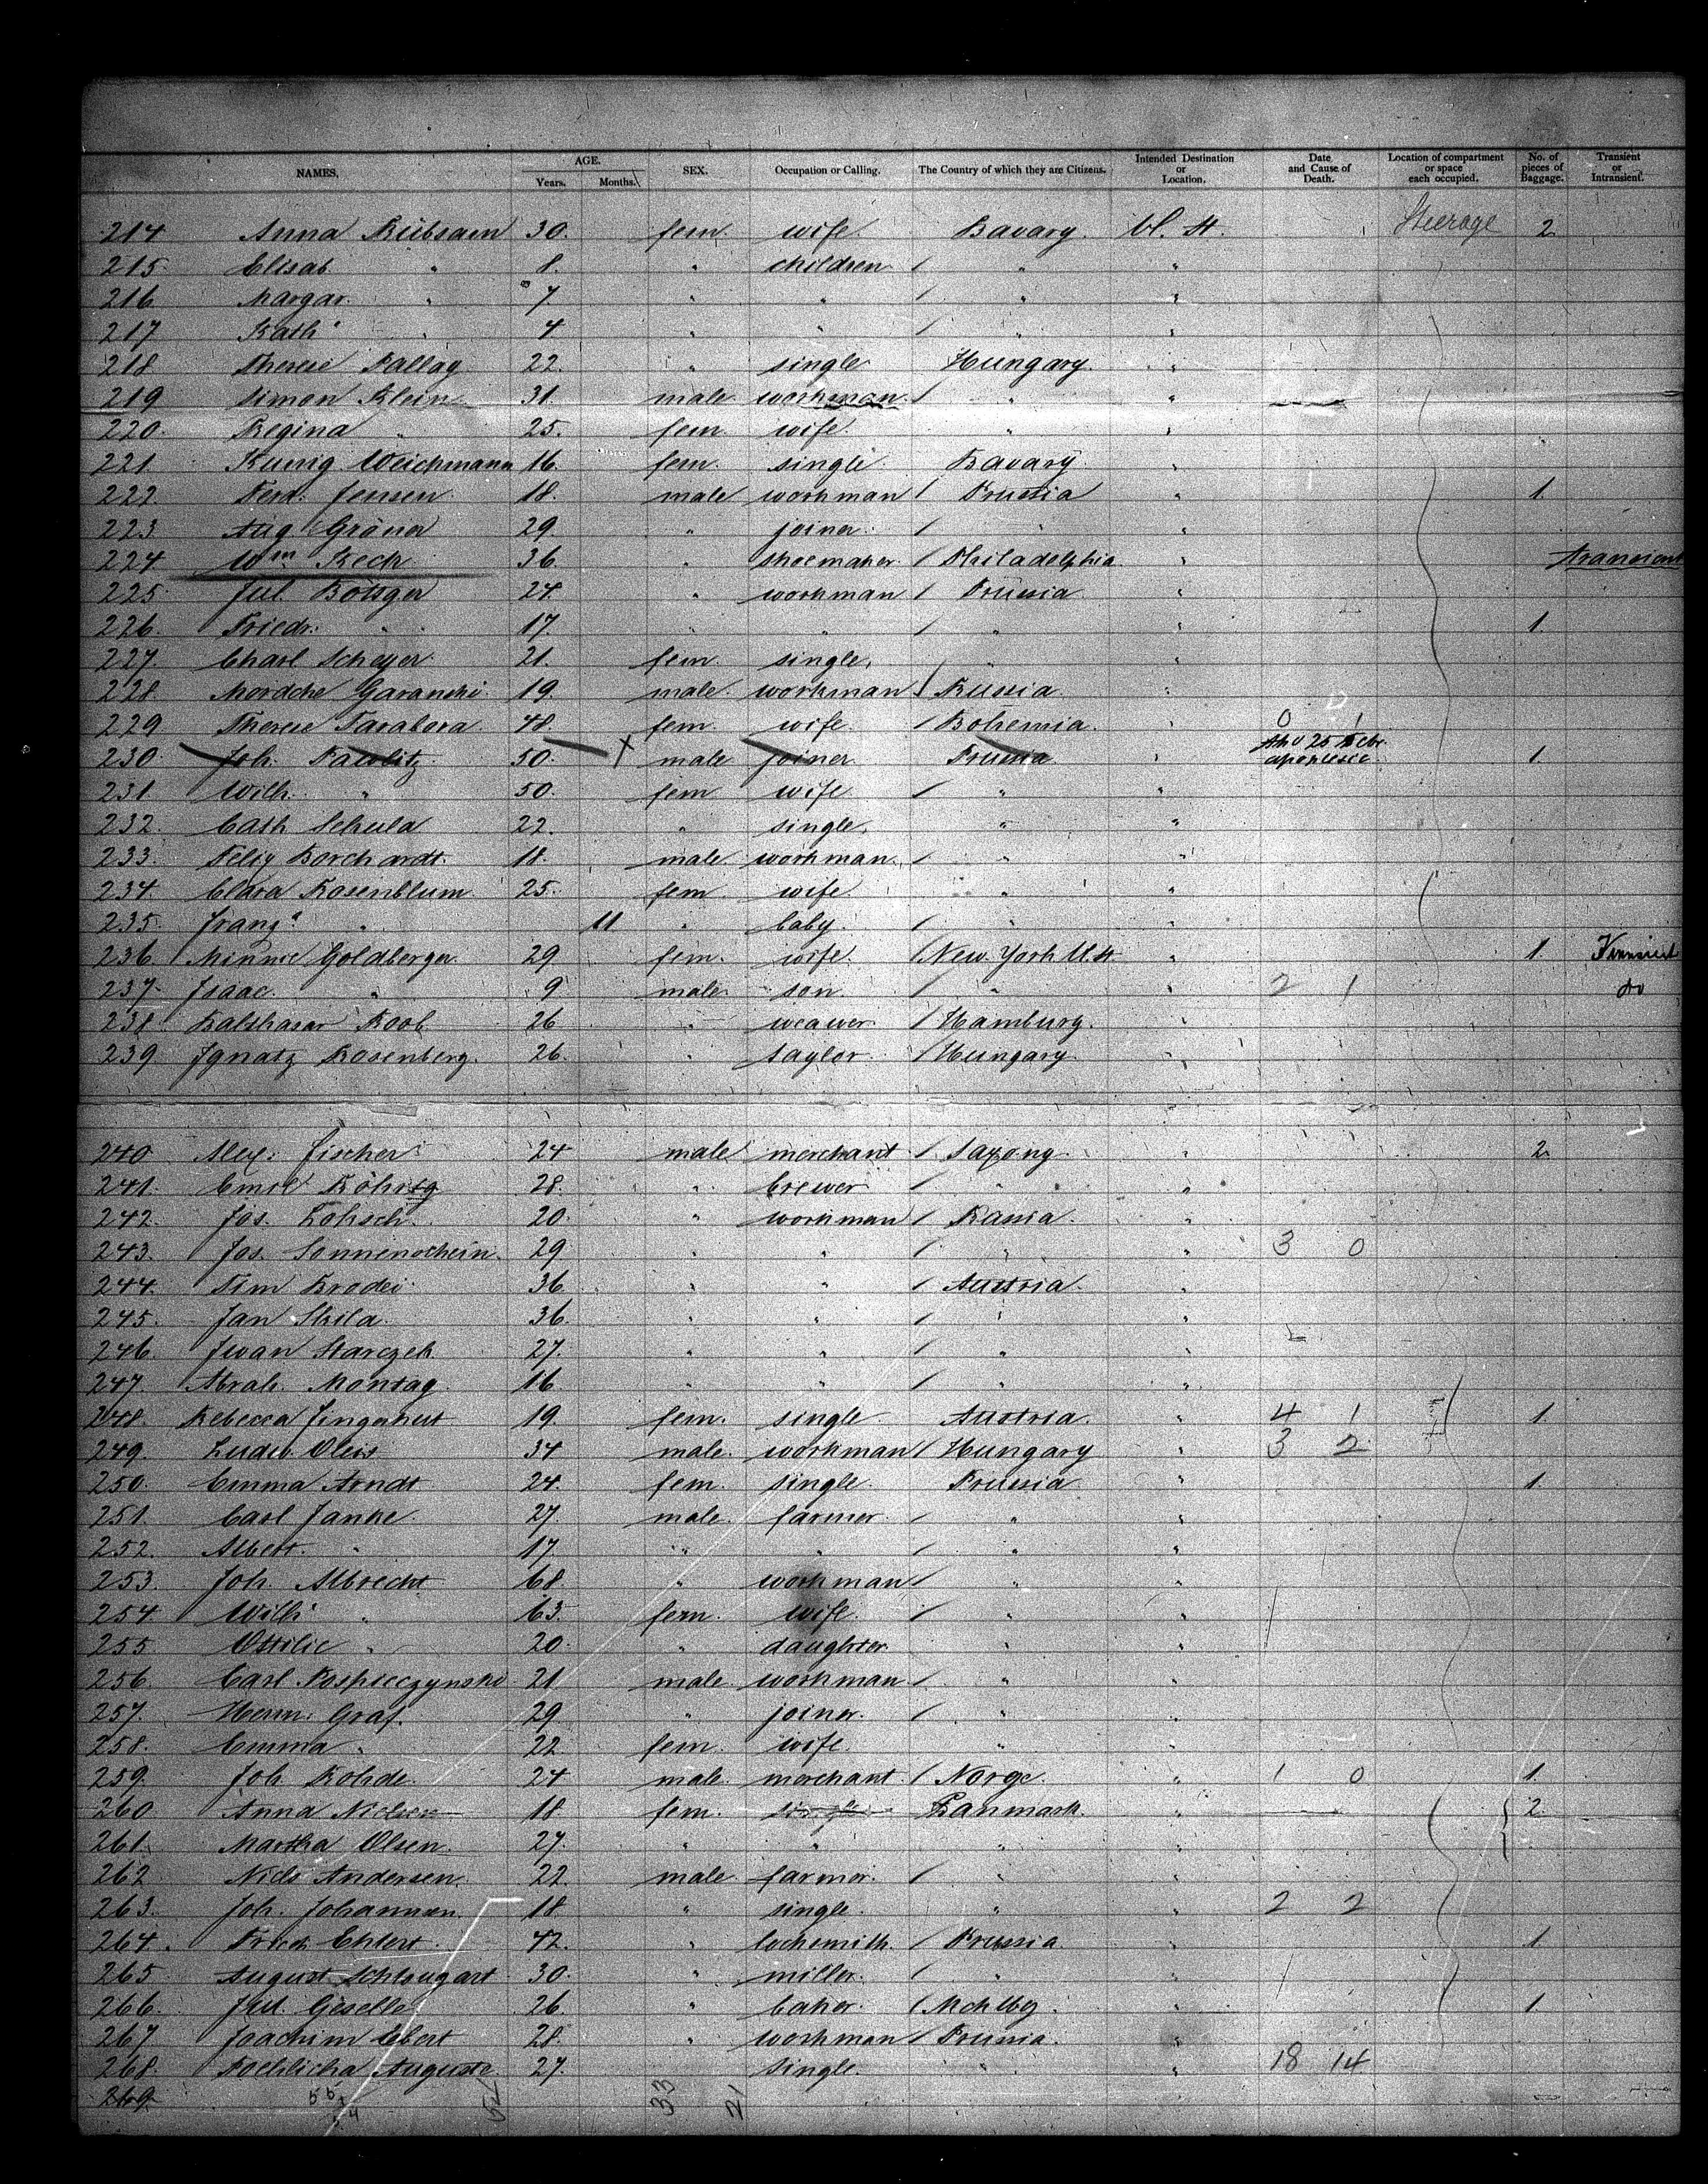 NAMES. AGE. Years. Months. SEX. Occupation or Calling. The Country of which they are Citizens. Intended Destination or Location. Date and Cause of Death. Location of compartment or space each occupied. No. of pieces of Baggage. Transient or Intransient.
214 Anna Rübsaam 30. fem. wife Bavary. U. St. Steerage 2
215. Elisab. " 8. " children / " "
216 Margar. " 7 " " / " "
217 Kath: " 4. " " / " "
218 Therese Pallag 22. " single Hungary. "
219 Simon Klein 31. male workman. / " "
220. Regina " 25. fem. wife. " "
221. Kunig Weichmann 16. fem. single Bavary. "
222. Ferd. Jensen 18. male workman / Prussia " 1.
223 Aug Gröner 29. " joiner. / " "
224 Wm. Kech 36 " shoemaker / Philadelphia " transient
225 Jul. Böttger 24. " workman / Prussia "
226. Friedr. " 17. " " / " " 1.
227. Charl Scheyer 21. fem. single, " "
228 Mordche Garanski 19. male. workman / Russia. "
229 Therese Tarabora. 48. fem. wife. / Bohemia. " 0 1
230. Joh. Pawlitz 50. X male joiner Prussia " 25 Febr. apoplexie. 1.
231 Wilh. " 50. fem wife / " "
232. Cath Schula 22. " single, " "
233. Felix Borchardt. 18. male workman. / " "
234. Clara Rosenblum 25. fem. wife. " "
235. Franz. " 11 " baby. / " "
236. Minnie Goldberger 29 fem. wife. (New York U.St. " 1. Transient
237. Isaac. " 9 male son. / " " 2 1 do
238 Balthasar Koob 26 " weawer / Hamburg. "
239 Ignatz Rosenberg. 26. " taylor. / Hungary. "
240 Alex. Fischer 24 male merchant / Saxony. " 2.
241. Emil Röhrig 28. " brewer / " "
242. Jos. Lohsch. 20. " workman / Russia. "
243. Jos. Sonnenschein. 29 " " / " " 3 0
244. Tim Brodei 36 " " / Austria. "
245. Jan Skila. 36. " " / " "
246. Iwan Starczek 27. " " / " "
247. Abrah. Montag. 16. " " / " "
248. Rebecca Fingerhut 19. fem. single Austria. " 4 1 1.
249. Ludw. 34 male. workman / Hungary " 3 2
250. Emma Arndt 24. fem. single. Prussia. " 1.
251. Carl Janke. 27. male. farmer. " "
252. Albert. " 17. " " / " "
253. Joh. Albrecht 68. " workman / " "
254 Wilh. " 63. fem. wife. / " "
255 Ottilie " 20. " daughter. " "
256 Carl Pospieczynski 21. male workman / " "
257. Herm. Graf. 29 " joiner. / " "
258. Emma " 22 fem. wife. "
259. Joh. Rohde. 24 male. merchant. / Norge. " 1 0 1.
260 Anna Nielsen 18 fem. single Danmark. " 2.
261. Martha Olsen. 27. " " " "
262 Niels Andersen. 22. male farmer. / " "
263. Joh. Johannsen. 18 " single. " " 2 2
264. Friedr. Ehlert 42. " locksmith. / Prussia. " 1.
265 August Schlaugart 30. " miller. / " "
266. Jul. Geselle 26. " baker. / Mcklbg. " 1
267 Joachim Ebert 28. " workman / Prussia. "
268. Auguste. 27. single. " " 18 14
269 55 1 54 54 33 21